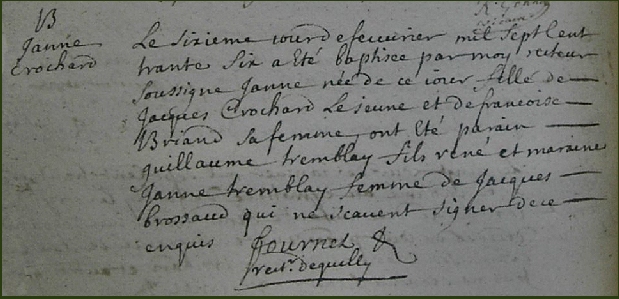 B
Janne
Crochard
Le sixieme jour de feuvrier mil sept cent
trante six a eté baptisee par moy recteur
soussigne Janne née de ce iour fille de
Jacques Crochard Le jeune et de francoise
Briand sa femme, ont eté parain
guillaume tremblay fils rené et maraine
Janne tremblay femme de Jacques
brossaud qui ne scavent signer de ce
enquis fournet &
rect.r de quilly